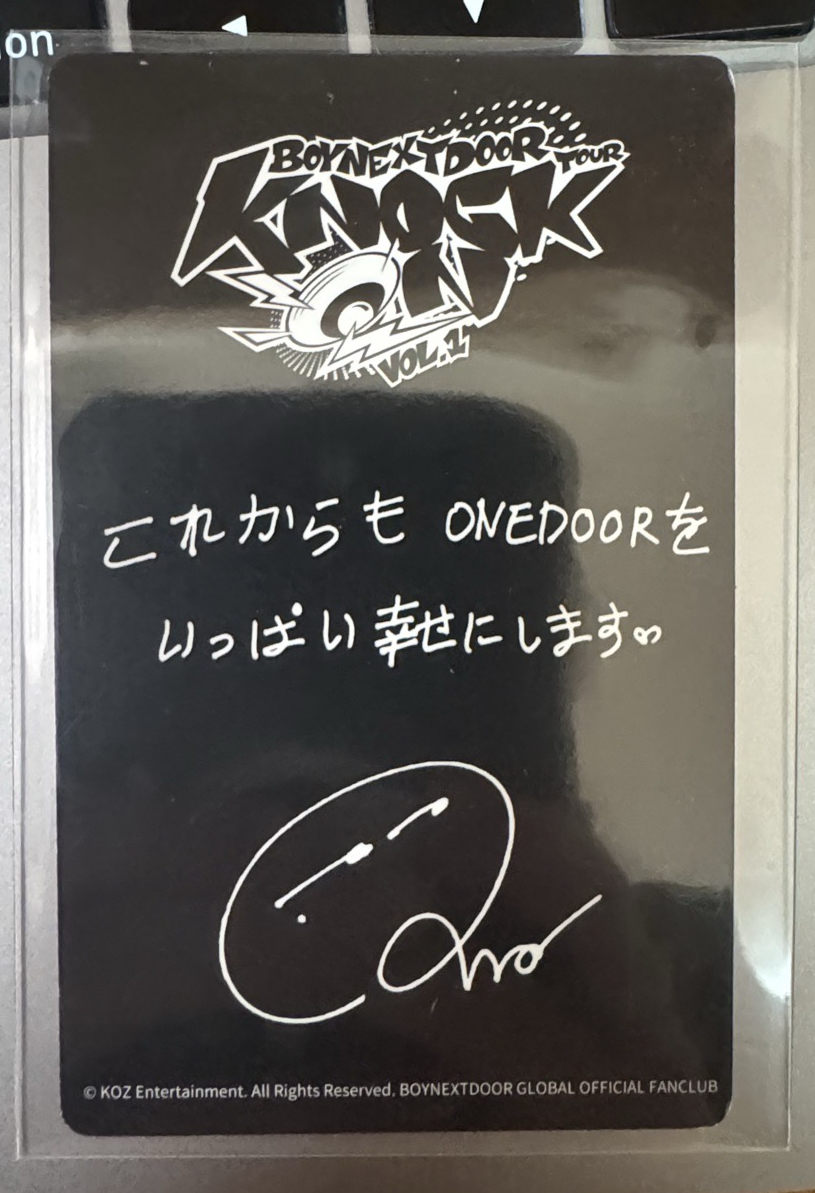 on
BOYNEXTDOOR TOUR
KNOCK
ON
VOL.1
これからも ONEDOORを
いっぱい幸せにします
© KOZ Entertainment. All Rights Reserved. BOYNEXTDOOR GLOBAL OFFICIAL FANCLUB